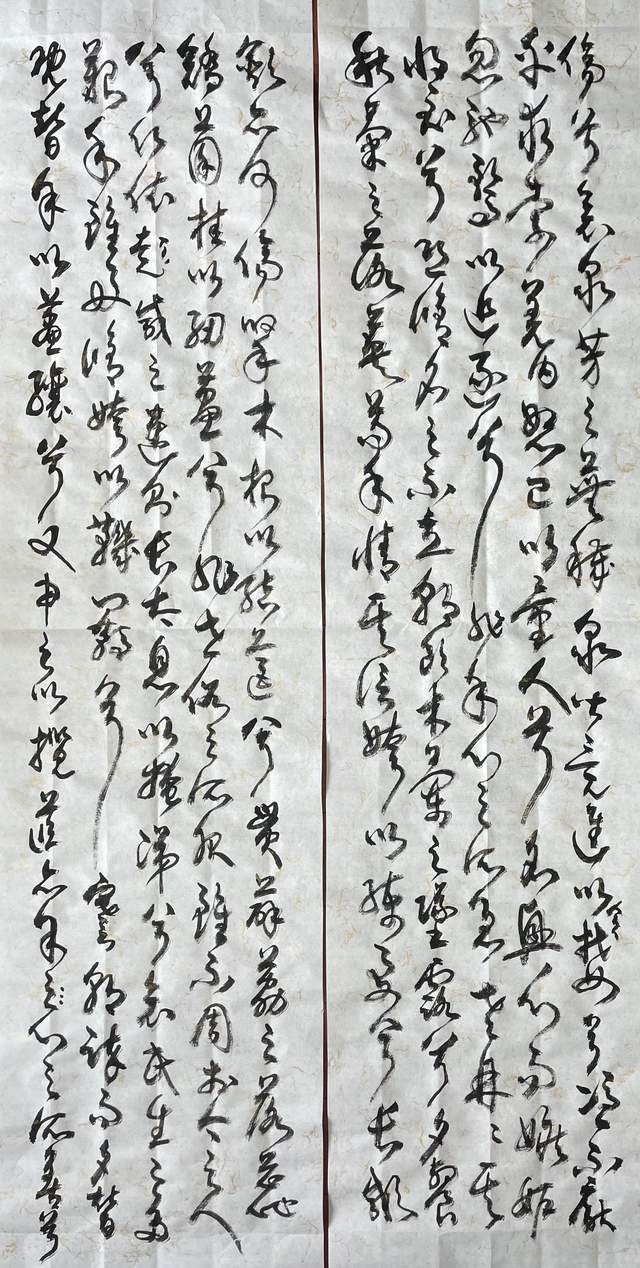 傷兮哀眾芳之蕪穢眾皆競進以貪婪兮憑不厭
乎求索羌內恕己以量人兮各興心而嫉妒
忽馳騖以追逐兮非余心之所急老冉冉其
將至兮恐脩名之不立朝飲木蘭之墜露兮夕餐
秋菊之落英苟余情其信姱以練要兮長顑
頷亦何傷擥木根以結茝兮貫薜荔之落蕊
矯菌桂以紉蕙兮非世俗之所服雖不周於今之人
兮依彭咸之遺則長太息以掩涕兮哀民生之多
艱余雖好脩姱以鞿羈兮謇朝誶而夕替
既替余以蕙纕兮又申之以攬茝亦余心之所善兮